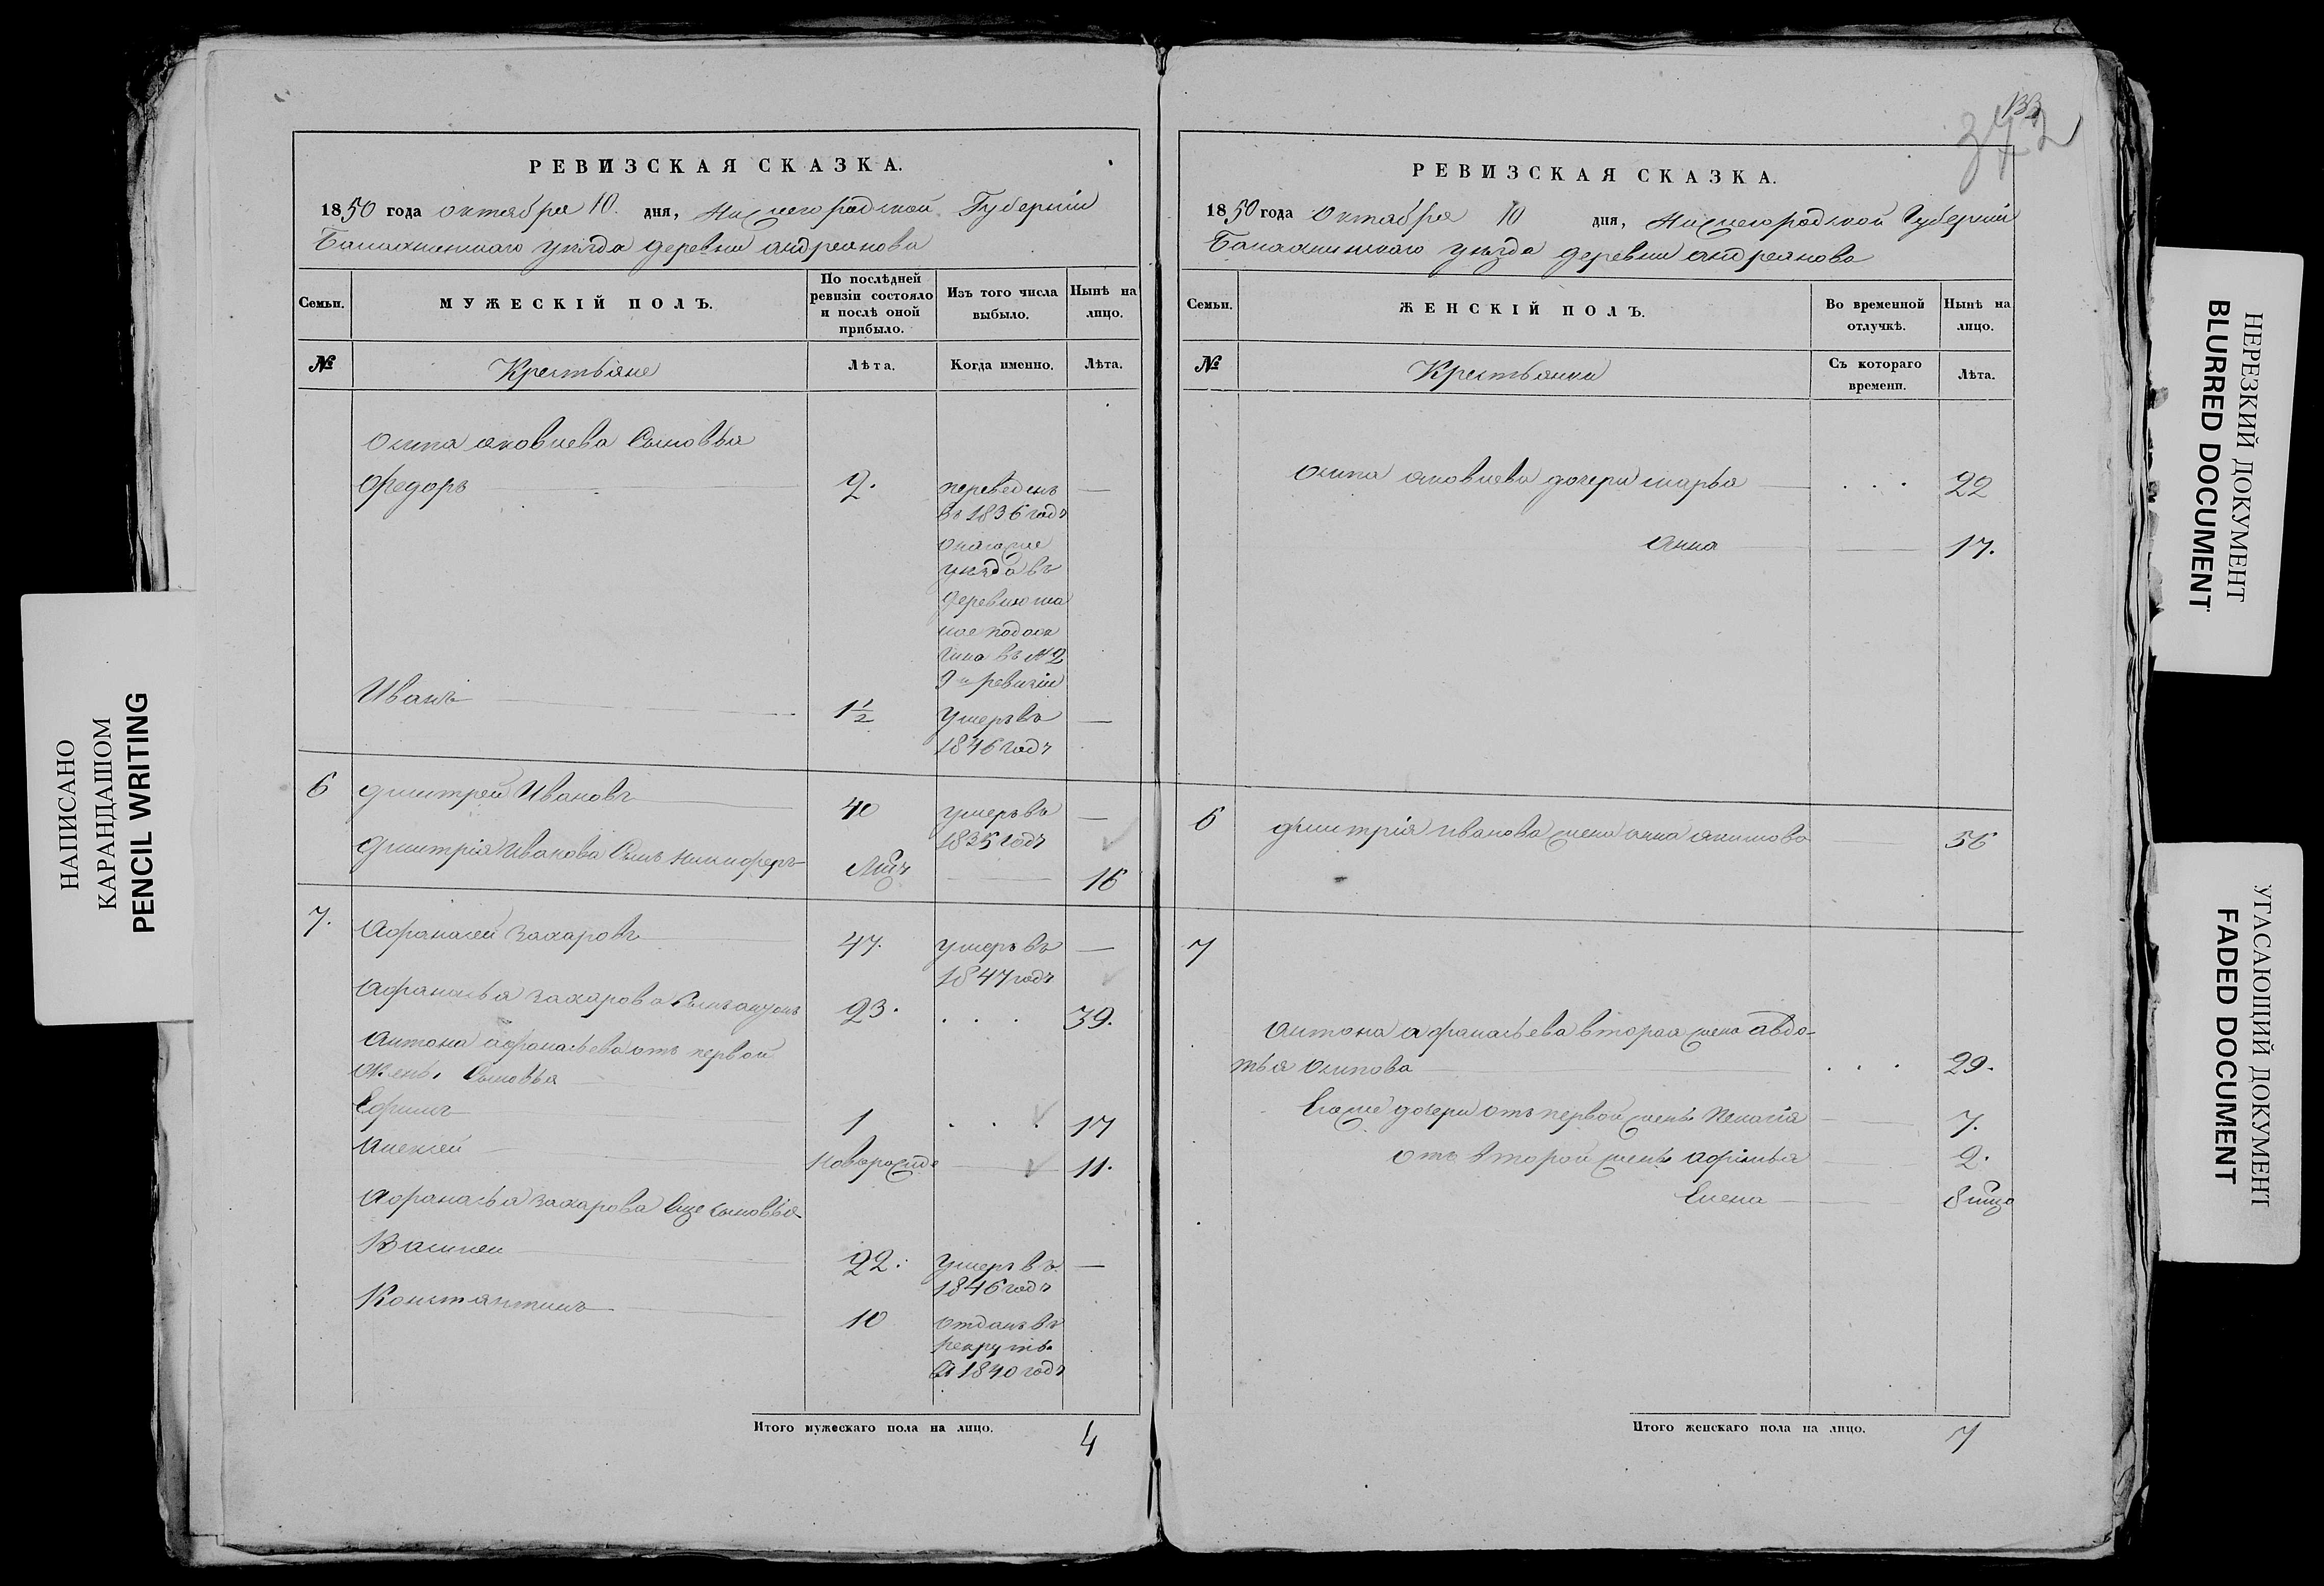 НАПИСАНО
КАРАНДАШОМ
PENCIL WRITING
РЕВИЗСКАЯ СКАЗКА.
1850 года октября 10. дня, Нижегородской Губерніи
Балахнинскаго уѣзда деревни андреянова
Семьи.
МУЖЕСКІЙ ПОЛЪ.
По послѣдней ревизіи состояло и послѣ оной прибыло.
Изъ того числа выбыло.
Нынѣ на лицо.
№
Крестьяне
Лѣта.
Когда именно.
Лѣта.
осипа яковлева Сыновья
Федоръ 2. переведенъ —
въ 1836 годѣ
онагоже
уѣзда въ
деревню ма
лое
въ № 2
9й ревизіи
Иванъ 1½ умеръ въ —
1846 годѣ
6 дмитрей Ивановъ 40 умеръ въ —
1835 годѣ
дмитрія Иванова Сынъ никифоръ 16
7. Афанасей Захаровъ 47. умеръ въ —
1847 годѣ
Афанасья захарова Сынъ антонъ 23. . . . 39.
Антона афанасьева отъ первой
жены Сыновья
Ефимъ 1 . . . 17
Алексей новорожде 11.
Афанасья захарова Еще сыновья
Василей 22. умеръ въ —
1846 годѣ
Константинъ 10 отданъ въ
рекруты
въ 1840 годѣ
Итого мужескаго пола на лицо. 4
133
342
РЕВИЗСКАЯ СКАЗКА.
1850 года Октября 10 дня, Нижегородской Губерніи
Балахнинскаго уѣзда деревни андреянова
Семьи.
ЖЕНСКІЙ ПОЛЪ.
Во временной отлучкѣ.
Нынѣ на лицо.
№
Крестьянки
Съ котораго времени.
Лѣта.
осипа яковлева дочери марья . . . 22
Анна 17.
6 дмитрія иванова жена анна якимова 56
7
Антона афанасьева вторая жена авдо-
тья осипова . . . 29.
Егоже дочери отъ первой жены Пелагія 7.
отъ второй жены афимья 2.
Елена
Итого женскаго пола на лицо. 7
НЕРЕЗКИЙ ДОКУМЕНТ
BLURRED DOCUMENT
УГАСАЮЩИЙ ДОКУМЕНТ
FADED DOCUMENT